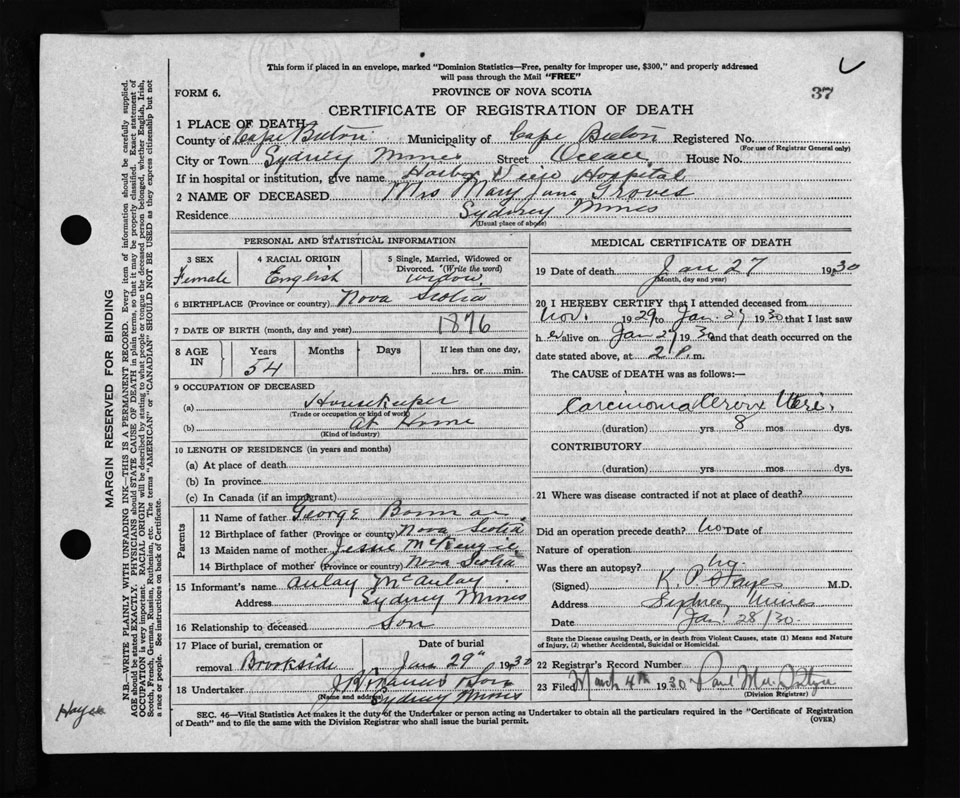 This form if placed in an envelope, marked "Dominion Statistics—Free, penalty for improper use, $300," and properly addressed
will pass through the Mail "FREE"
FORM 6.
PROVINCE OF NOVA SCOTIA
37
CERTIFICATE OF REGISTRATION OF DEATH
1 PLACE OF DEATH
County of Cape Breton Municipality of Cape Breton Registered No.
(For use of Registrar General only)
City or Town Sydney Mines Street Ocean House No.
If in hospital or institution, give name Harbor View Hospital
2 NAME OF DECEASED Mrs Mary Jane Groves
Residence Sydney Mines
(Usual place of abode)
PERSONAL AND STATISTICAL INFORMATION
3 SEX 4 RACIAL ORIGIN 5 Single, Married, Widowed or
Divorced. (Write the word)
Female English Widow
6 BIRTHPLACE (Province or country) Nova Scotia
7 DATE OF BIRTH (month, day and year) 1876
8 AGE IN Years Months Days If less than one day,
54 hrs. or min.
9 OCCUPATION OF DECEASED
(a) Housekeeper
(Trade or occupation or kind of work)
(b) At Home
(Kind of industry)
10 LENGTH OF RESIDENCE (in years and months)
(a) At place of death
(b) In province
(c) In Canada (if an immigrant)
Parents
11 Name of father George
12 Birthplace of father (Province or country) Nova Scotia
13 Maiden name of mother Jessie McKenzie
14 Birthplace of mother (Province or country) Nova Scotia
15 Informant's name Aulay McAulay
Address Sydney Mines
16 Relationship to deceased Son
17 Place of burial, cremation or Date of burial
removal Brookside Jan 29th 1930
18 Undertaker
(Name and address) Sydney Mines
MEDICAL CERTIFICATE OF DEATH
19 Date of death Jan 27 1930
(Month, day and year)
20 I HEREBY CERTIFY that I attended deceased from
Nov. 1929 to Jan. 27 1930 that I last saw
her alive on Jan 27 1930 and that death occurred on the
date stated above, at 2 P.m.
The CAUSE of DEATH was as follows:—
Carcinoma Cervix Uteri.
(duration) yrs 8 mos dys.
CONTRIBUTORY
(duration) yrs. mos. dys.
21 Where was disease contracted if not at place of death?
Did an operation precede death? No Date of
Nature of operation
Was there an autopsy? No
(Signed) K. P. Hayes M.D.
Address Sydney Mines
Date Jan. 28/30.
State the Disease causing Death, or in death from Violent Causes, state (1) Means and Nature
of Injury, (2) whether Accidental, Suicidal or Homicidal.
22 Registrar's Record Number
23 Filed March 4th 1930 Paul
(Division Registrar)
SEC. 46—Vital Statistics Act makes it the duty of the Undertaker or person acting as Undertaker to obtain all the particulars required in the "Certificate of Registration
of Death" and to file the same with the Division Registrar who shall issue the burial permit. (OVER)
MARGIN RESERVED FOR BINDING
N.B.—WRITE PLAINLY WITH UNFADING INK—THIS IS A PERMANENT RECORD. Every item of information should be carefully supplied.
AGE should be stated EXACTLY. PHYSICIANS should STATE CAUSE OF DEATH in plain terms, so that it may be properly classified. Exact statement of
OCCUPATION is very important. RACIAL ORIGIN will be described by stating to what people or tongue the deceased person belonged, whether English, Irish,
Scotch, French, German, Russian, Ruthenian, etc. The terms "AMERICAN" or "CANADIAN" SHOULD NOT BE USED as they express citizenship but not
a race or people. See instructions on back of Certificate.
Hayes